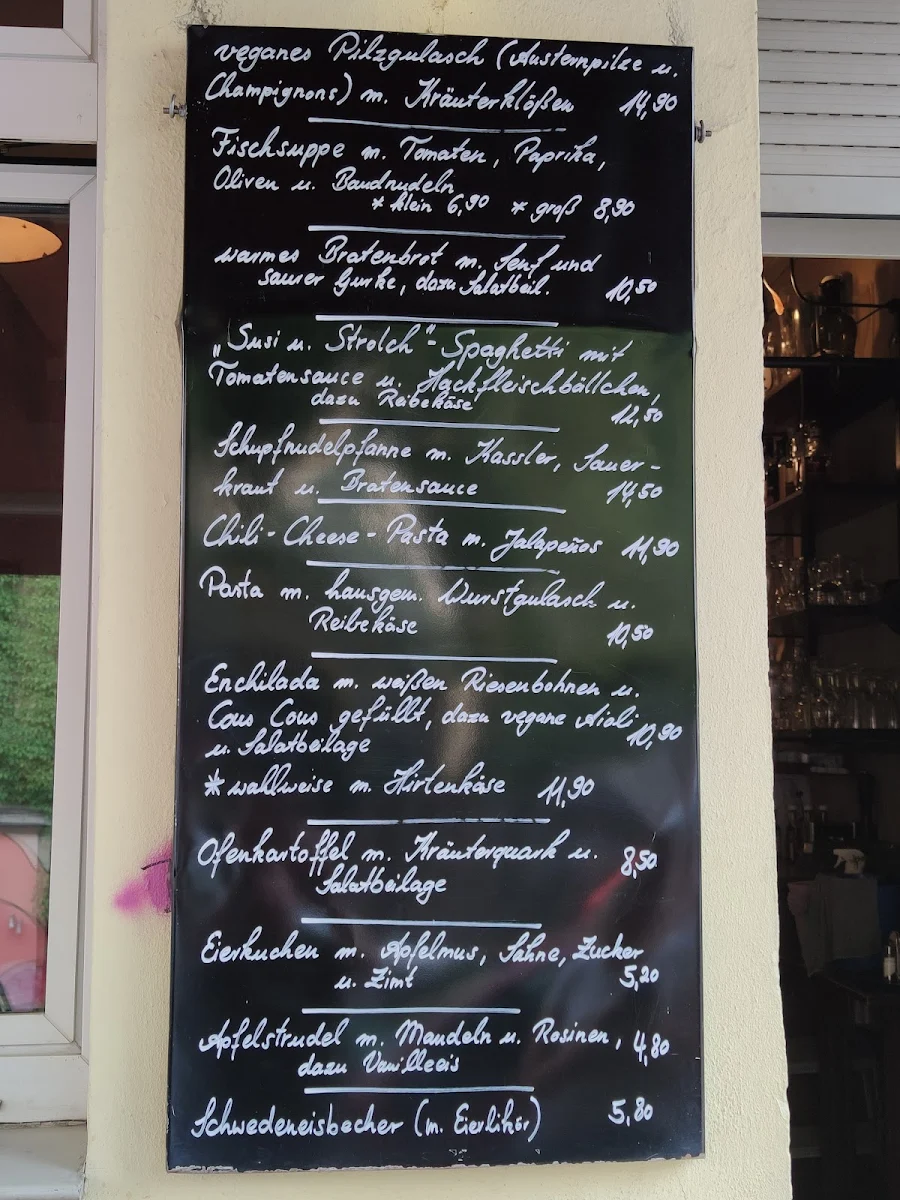 veganes Pilzgulasch (Austernpilze u.
Champignons) m. Kräuterklößen 14,90
Fischsuppe m. Tomaten, Paprika,
Oliven u. Bandnudeln
* klein 6,90 * groß 8,90
warmes Bratenbrot m. Senf und
saurer Gurke, dazu Salatbeil. 10,50
„Susi u. Strolch"-Spaghetti mit
Tomatensauce u. Hackfleischbällchen,
dazu Reibekäse 12,50
Schupfnudelpfanne m. Kassler, Sauer-
kraut u. Bratensauce 14,50
Chili-Cheese-Pasta m. Jalapeños 11,90
Pasta m. hausgem. Wurstgulasch u.
Reibekäse 10,50
Enchilada m. weißen Riesenbohnen u.
Cous Cous gefüllt, dazu vegane Aioli 10,90
u. Salatbeilage
* wahlweise m. Hirtenkäse 11,90
Ofenkartoffel m. Kräuterquark u. 8,50
Salatbeilage
Eierkuchen m. Apfelmus, Sahne, Zucker
u. Zimt 5,20
Apfelstrudel m. Mandeln u. Rosinen, 4,80
dazu Vanilleeis
Schwedeneisbecher (m. Eierlikör) 5,80